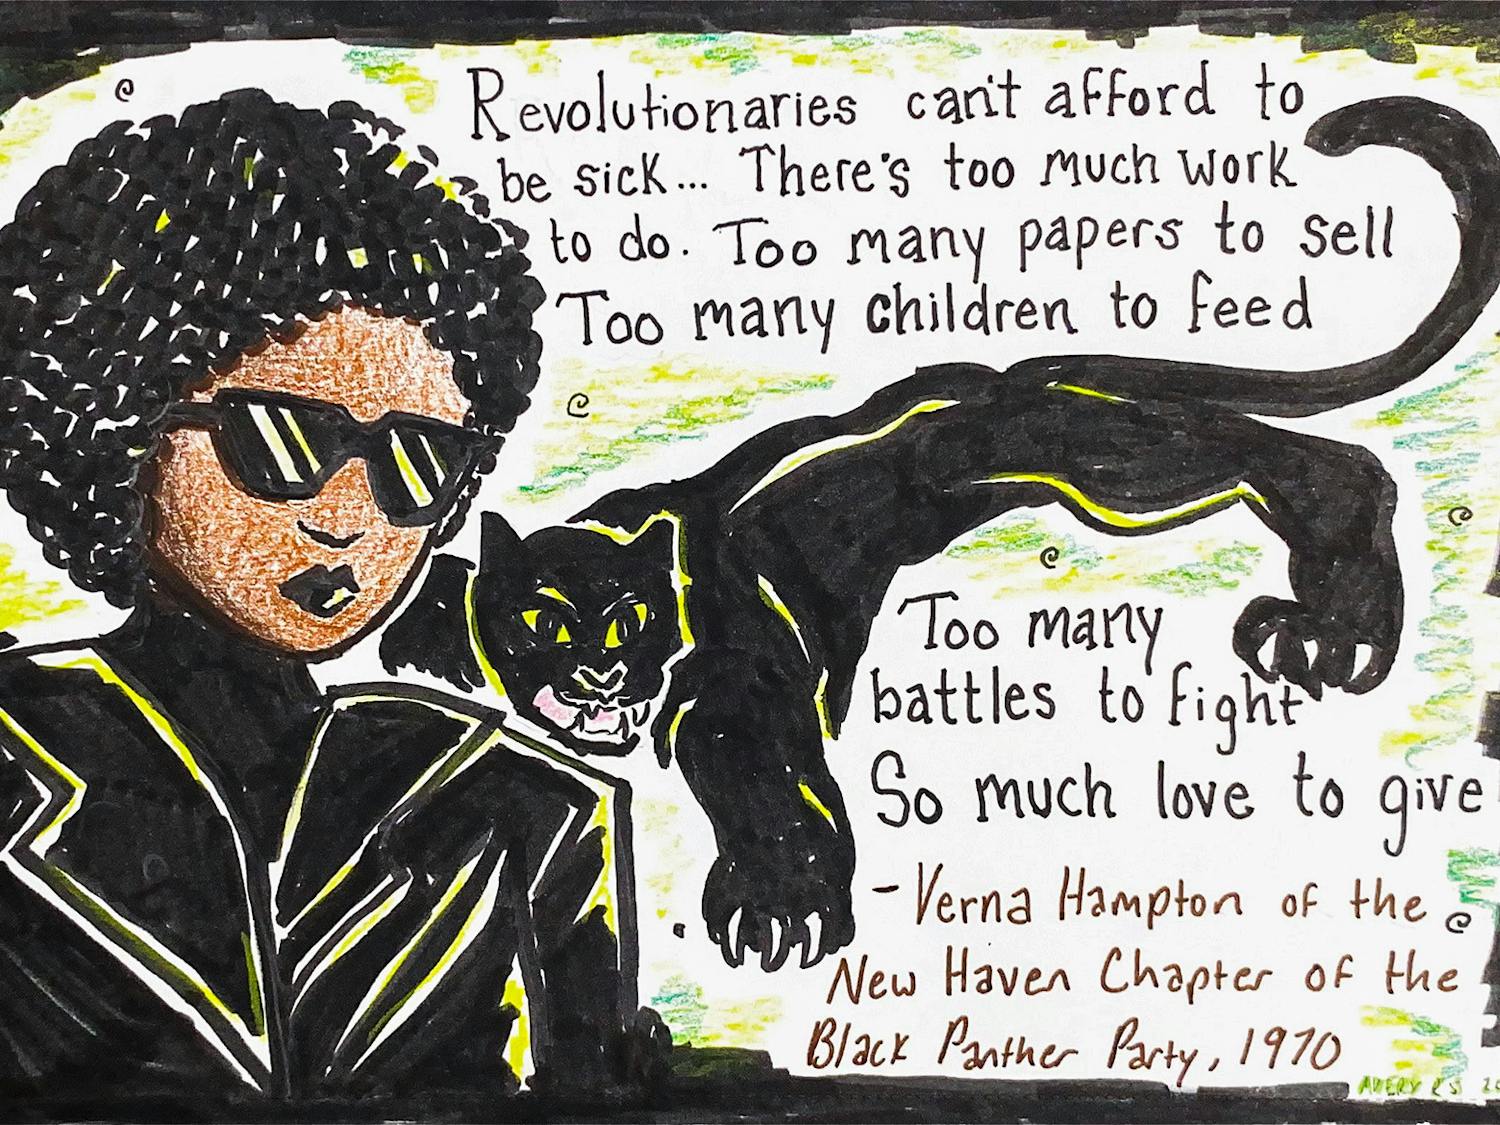 Revolutionaries can't afford to
be sick... There's too much work
to do. Too many papers to sell
Too many children to feed
Too many
battles to fight
So much love to give
- Verna Hampton of the
New Haven Chapter of the
Black Panther Party, 1970
AVERY